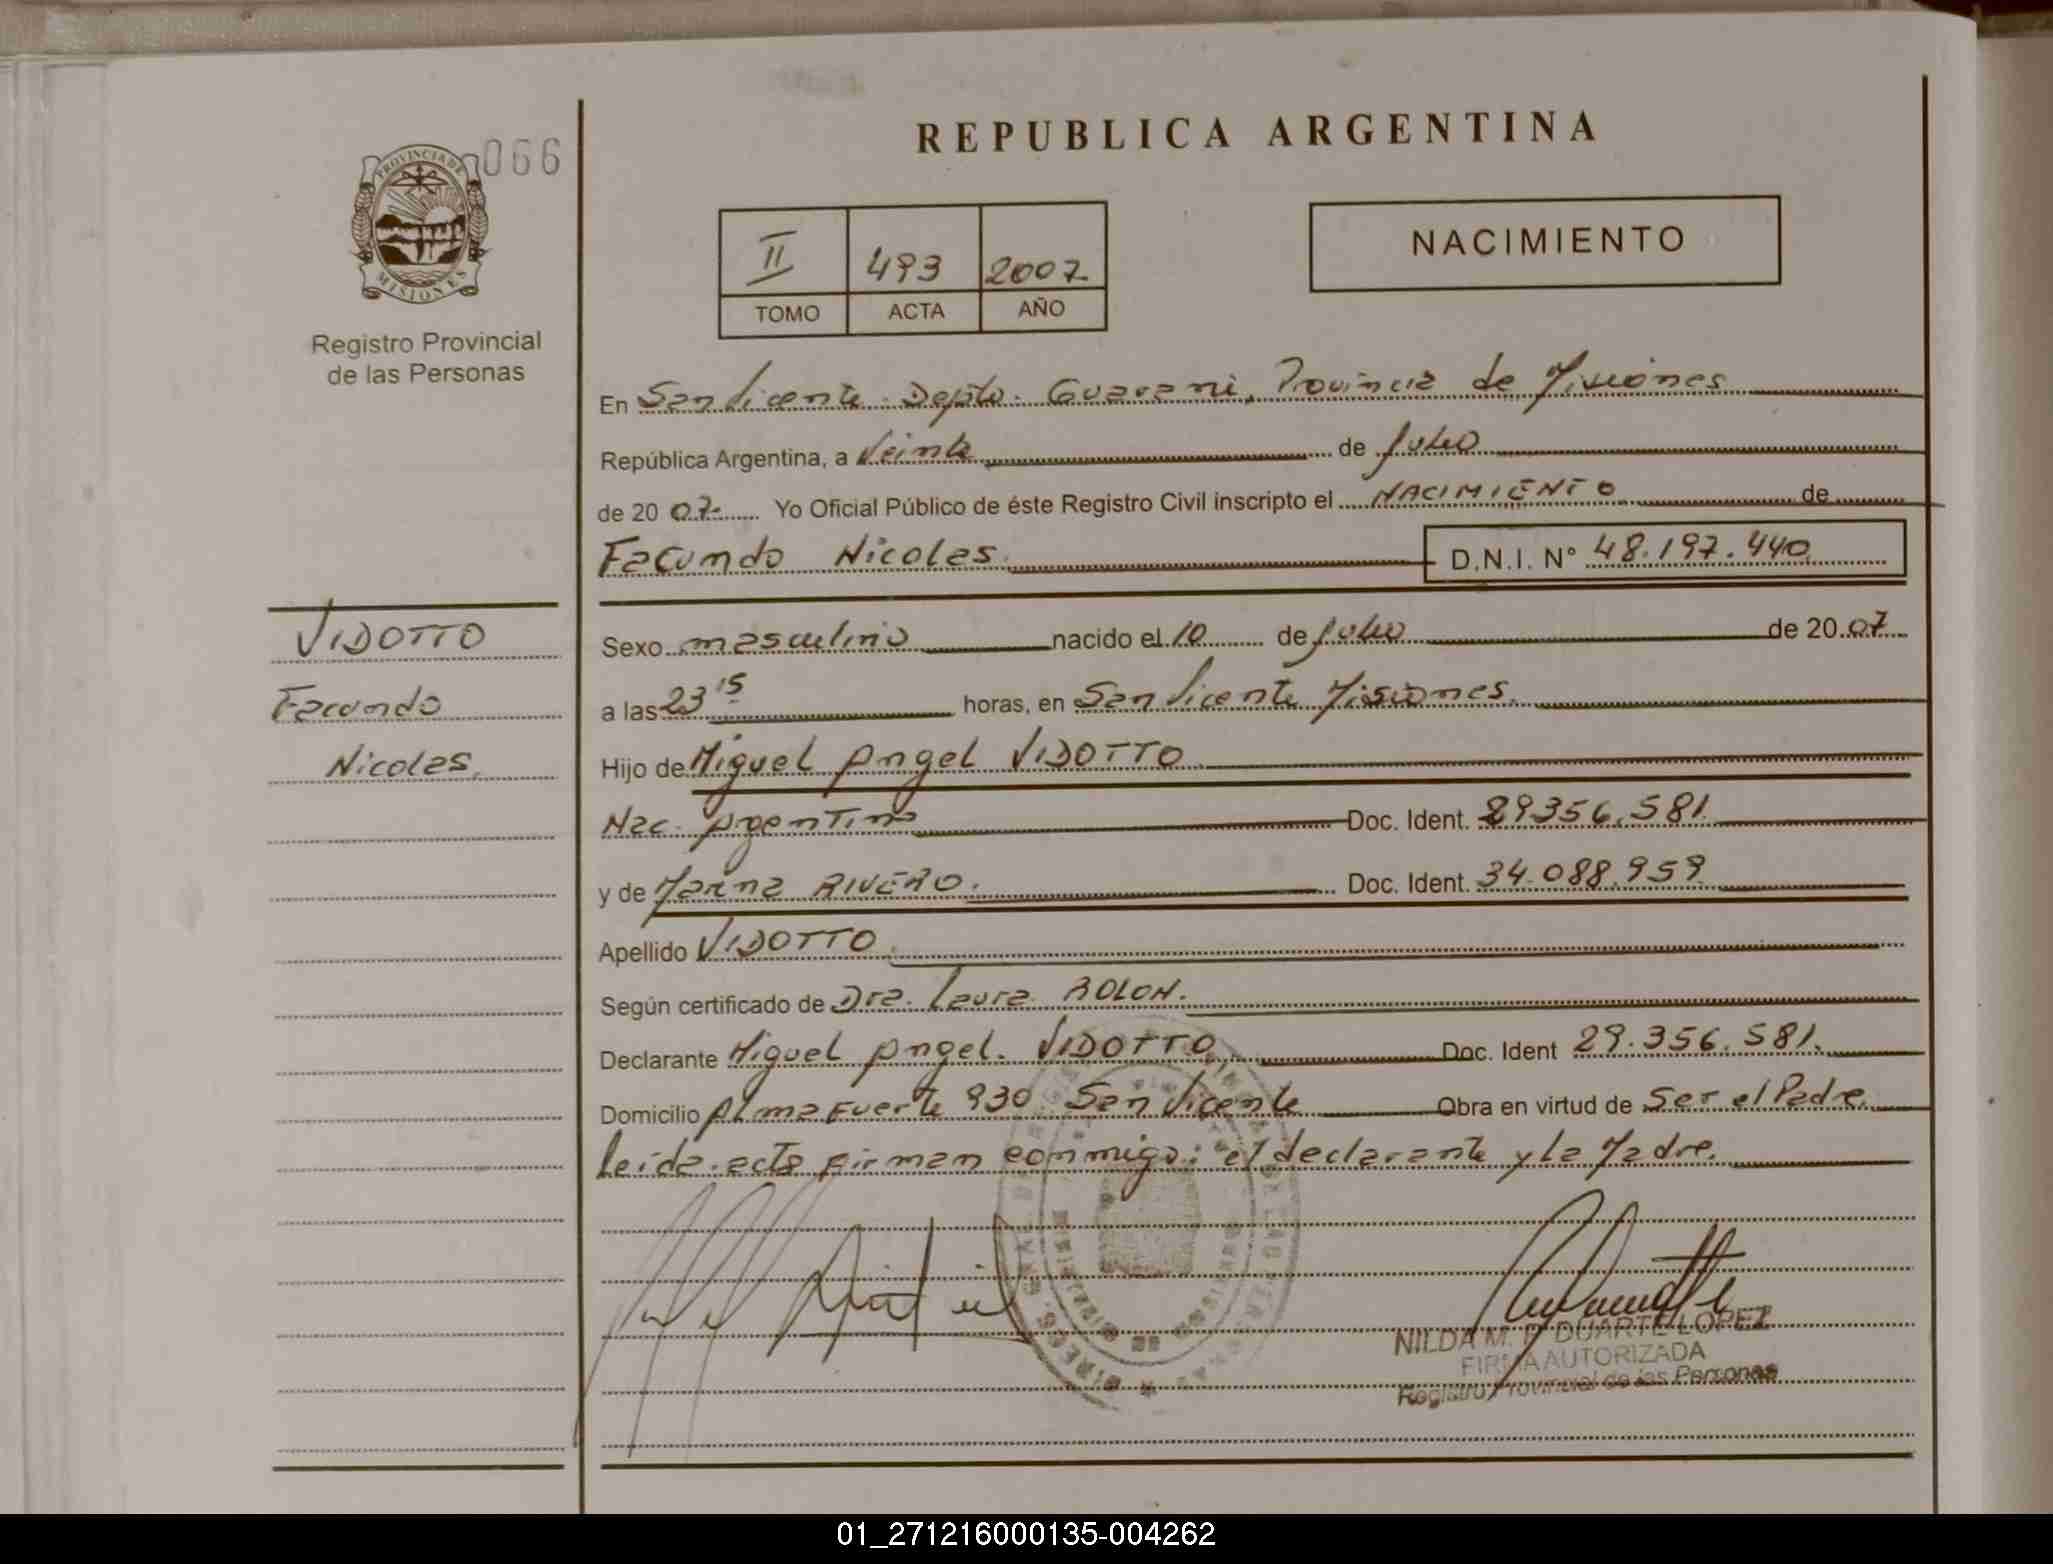 066
PROVINCIA DE
MISIONES
Registro Provincial
de las Personas
VIDOTTO
Facundo
Nicolas.
REPUBLICA ARGENTINA
II 493 2007
TOMO ACTA AÑO
NACIMIENTO
En San Vicente Depto. Guarani, Provincia de Misiones
República Argentina, a Veinte de Julio
de 20 07- Yo Oficial Público de éste Registro Civil inscripto el NACIMIENTO de
Facundo Nicolas. D.N.I. N° 48.197.440
Sexo masculino nacido el 10 de Julio de 20 07
a las 23 15 horas, en San Vicente Misiones.
Hijo de Miguel Angel VIDOTTO
Nac. Argentino Doc. Ident. 29.356.581
y de RIVERO. Doc. Ident. 34.088.959
Apellido VIDOTTO
Según certificado de Dra. Laura ROLON.
Declarante Miguel Angel. VIDOTTO Doc. Ident 29.356.581.
Domicilio Almafuerte 930 San Vicente Obra en virtud de Ser el Padre.
Leida acta firman conmigo: el declarante y la Madre.
NILDA M. P. DUARTE LOPEZ
FIRMA AUTORIZADA
Registro Provincial de las Personas
01_271216000135-004262